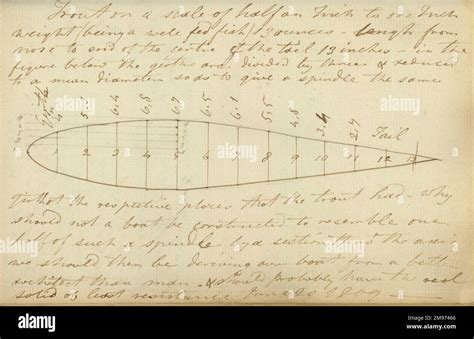 Trout on a scale of half an Inch to one Inch
weight (being a well fed fish) 13 ounces - length from
nose to end of the centre of the tail 13 inches - in the
figure below the girths are divided by three & reduced
to a mean diameter so as to give a spindle the same
Girths 4 5 6.4 6.8 6.9 6.5 6.1 5.5 4.8 3.4 2.9 Tail
1 2 3 4 5 6 7 8 9 10 11 12 13
girth at the respective places that the trout had - Why
should not a boat be constructed to resemble one
half of such a spindle by a section thro the axis
we should then be deriving our boat from a better
architect than man - & should probably have the real
solid of least resistance June 20 1809
alamy
Image ID: 2M97466
www.alamy.com